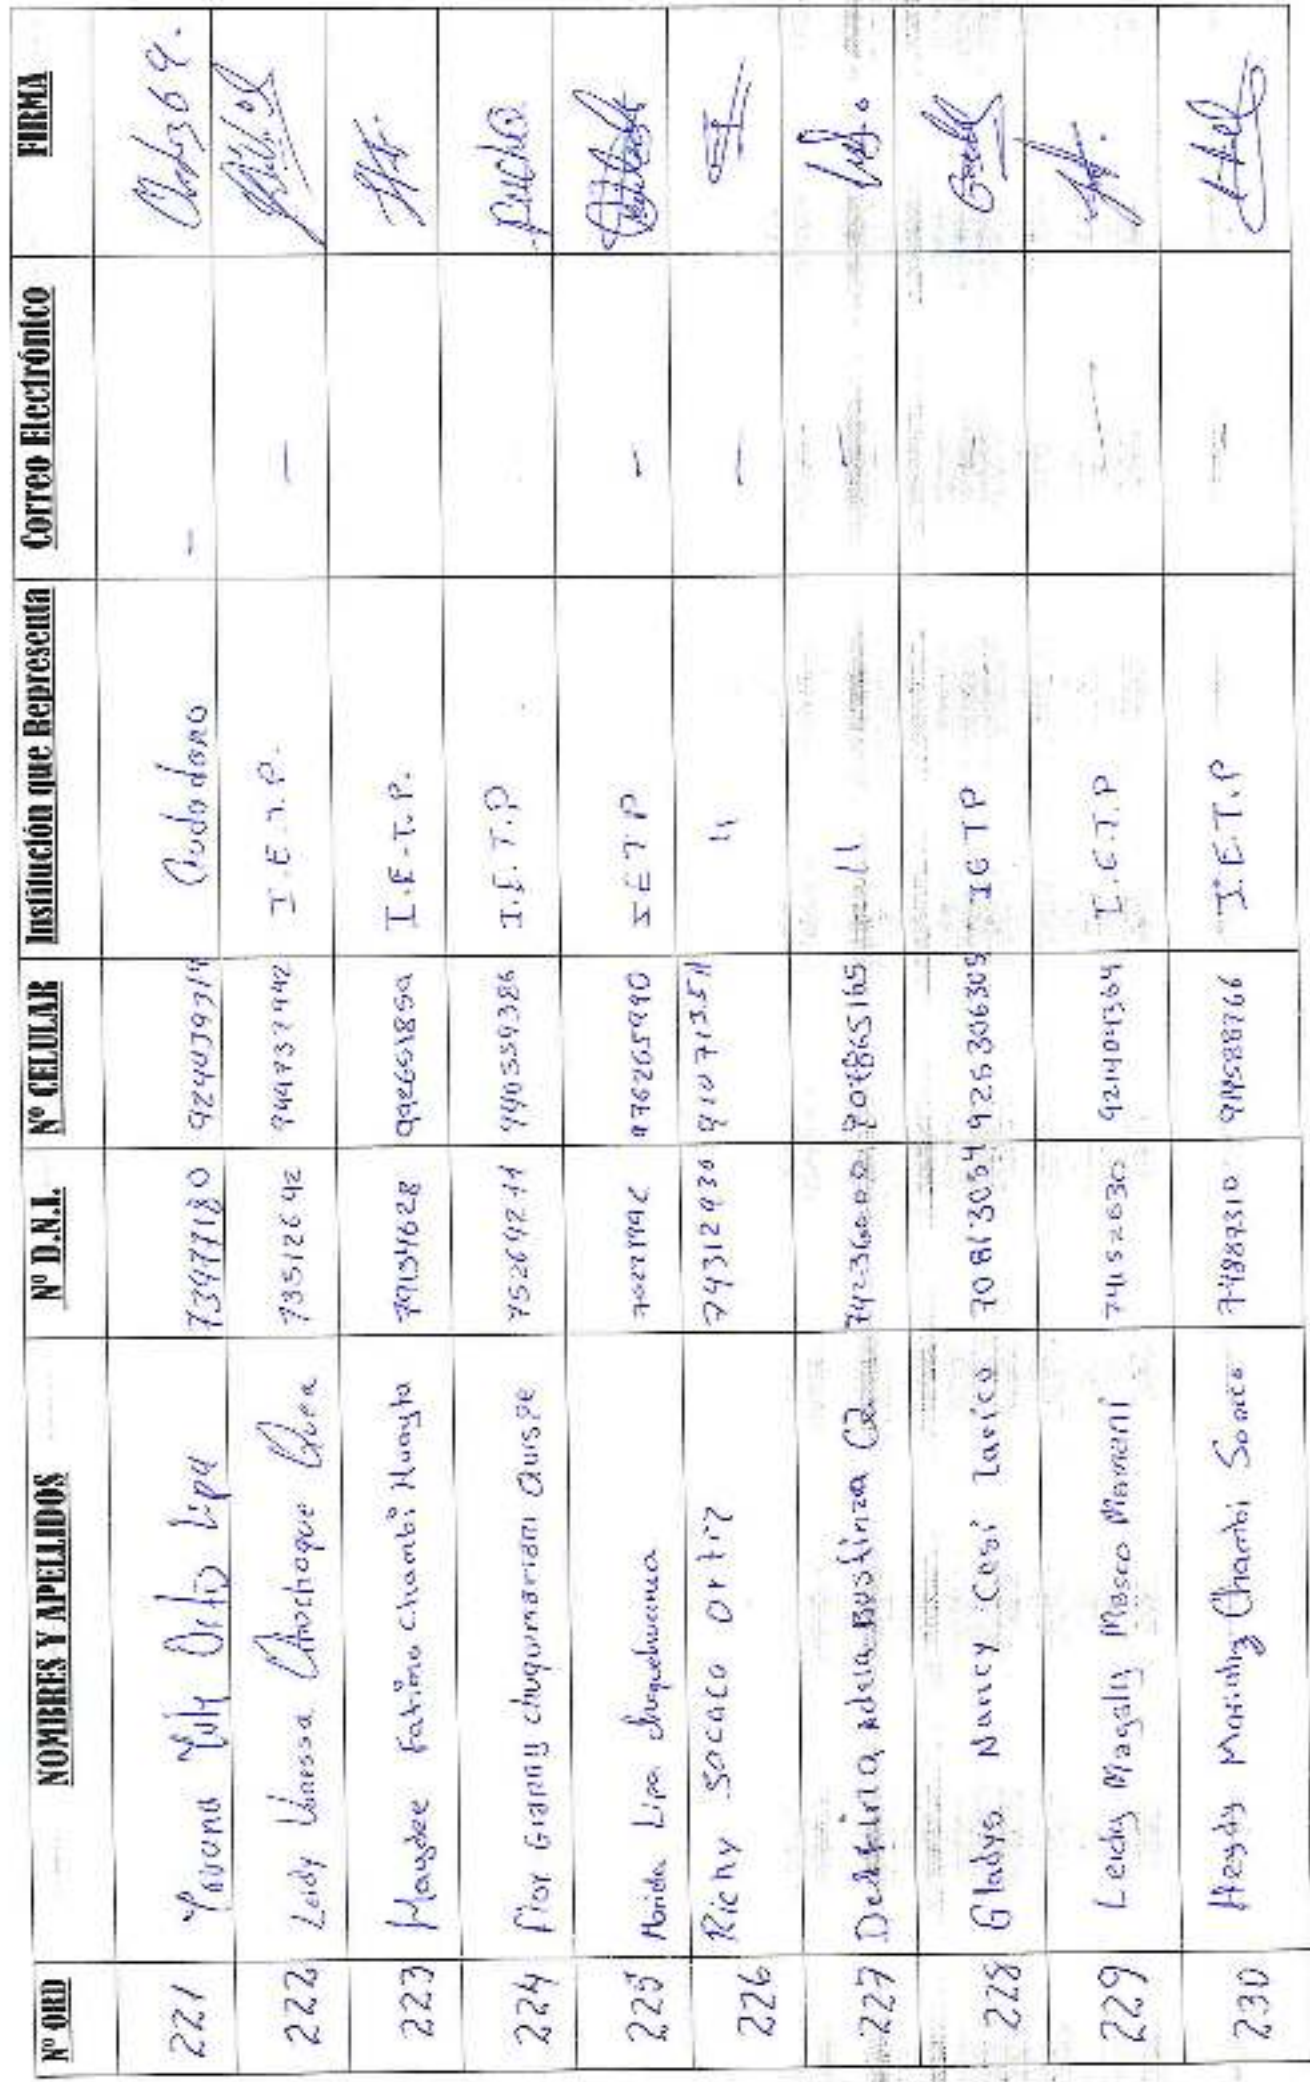 Nº ORD NOMBRES Y APELLIDOS Nº D.N.I. Nº CELULAR Institución que Representa Correo Electrónico FIRMA
221 Yuly Ortiz Lipa 73477180 924439314 -
222 Leidy Vanessa Chochoque Quea 73512642 949737442 I.E.T.P. -
223 Haydee Fatima Chambi Huayta 79134628 992651850 I.E.T.P.
224 Flor Gianny Chuquimamani Quispe 75264211 940559386 I.E.T.P
225 Lipa Chuquehuanca 976265990 I E T P -
226 Richy Socaco Ortiz 74312930 910713511 11 -
227 Delfina Adela Bustinza 11 -
228 Gladys Nancy Casi Larico 70813054 925306305 IETP -
229 Leidy Magaly Masco Mamani 74152630 921404364 I.E.T.P -
230 Heydy Chambi Sonco 74889310 914588766 I.E.T.P -